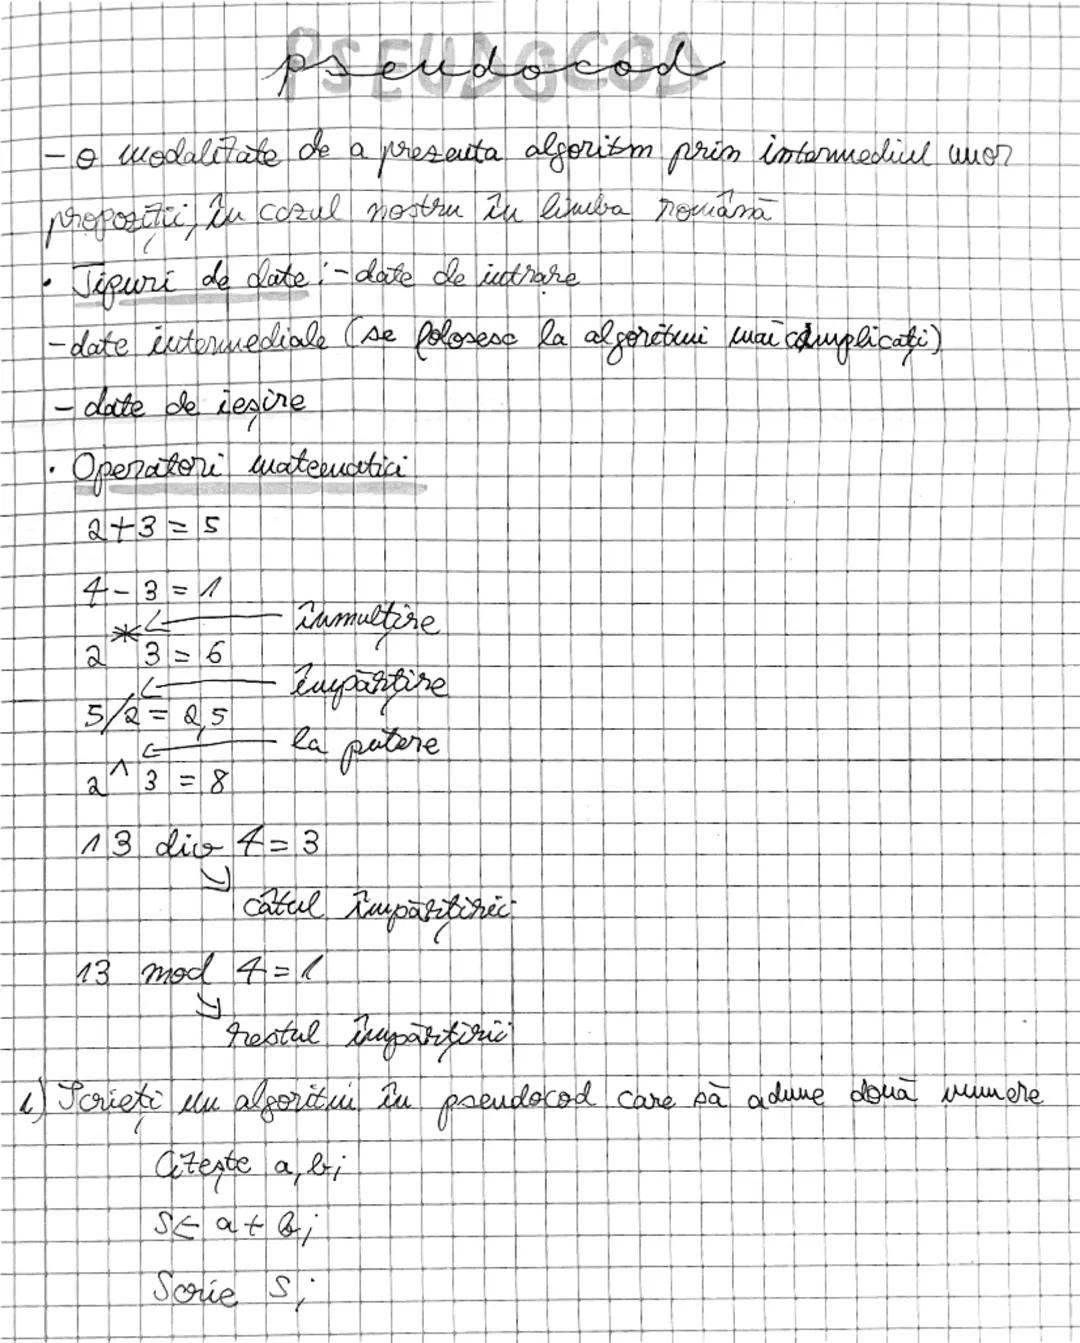 PSEUDOCOD
pseudocod
- o modalitate de a prezenta algoritm prin intermediul unor
propoziții, în cazul nostru în limba română
• Tipuri de date: - date de intrare
- date intermediale (se folosesc la algoritmi mai complicați)
- date de ieșire
• Operatori matematici
2 + 3 = 5
4 - 3 = 1
înmulțire
2 * 3 = 6
împărțire
5/2 = 2,5
la putere
2 ^ 3 = 8
13 div 4 = 3
câtul împărțirii
13 mod 4 = 1
restul împărțirii
1) Scrieți un algoritm în pseudocod care să adune două numere
Citește a, b;
S ← a + b;
Scrie S;